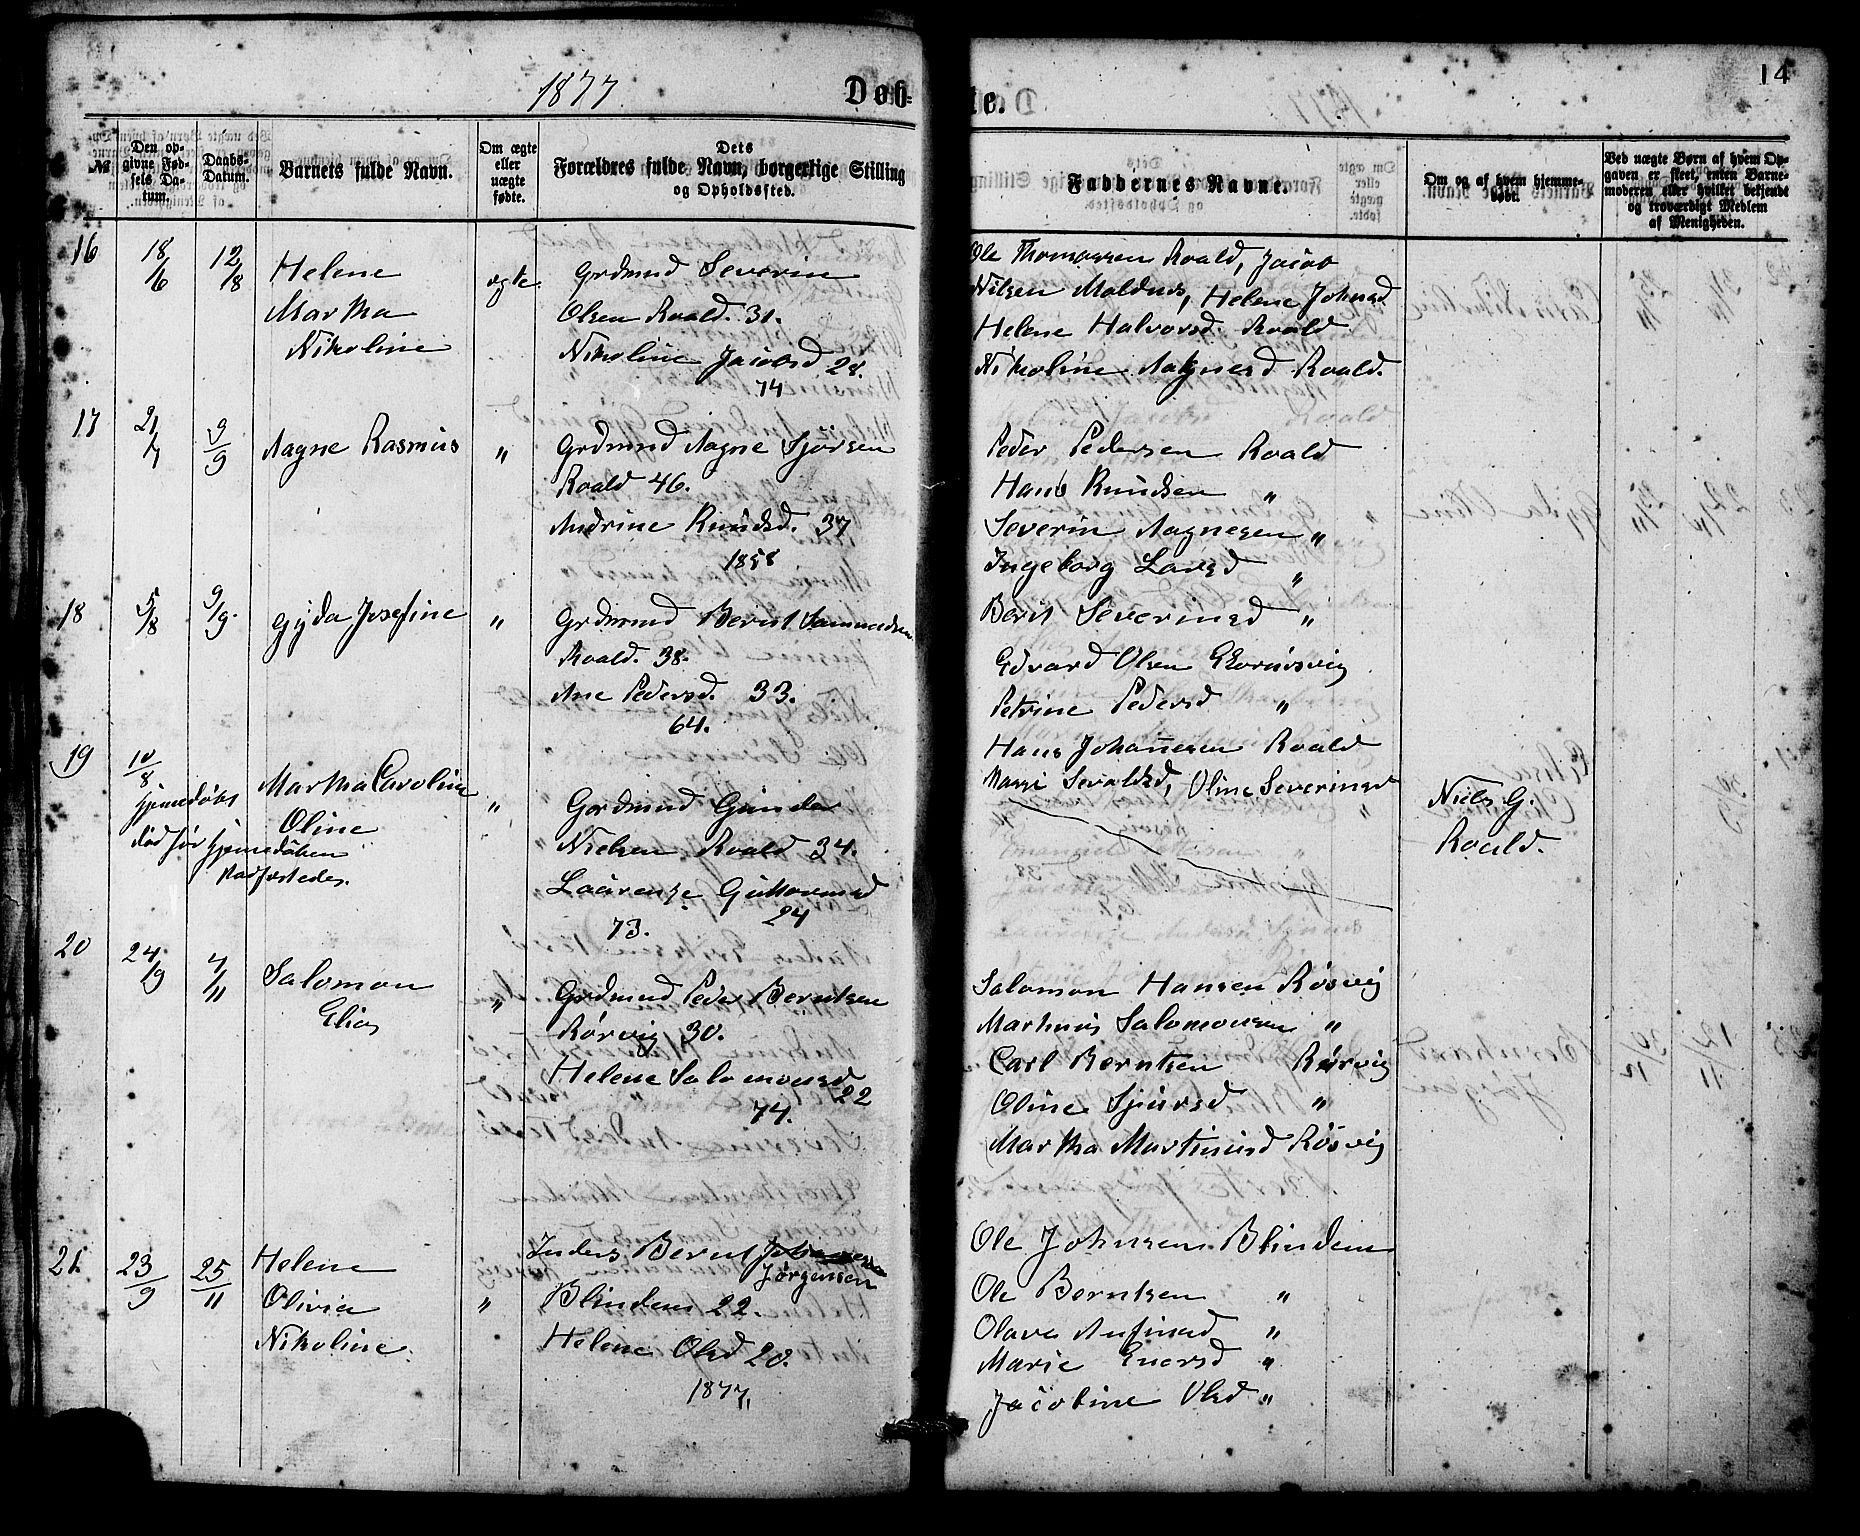 1877.
Døb-
te.
14
№
Den op-
givne Fød-
sels Da-
tum.
Daabs-
Datum.
Barnets fulde Navn.
Om ægte
eller
uægte
fødte.
Dets
Forældres fulde Navn, borgerlige Stilling
og Opholdssted.
Faddernes Navne.
Om og af hvem hjemme-
døbt.
Ved uægte Børn af hvem Op-
gaven er skeet, enten Barne-
moderen eller hvilket bekjendt
og troværdigt Medlem
af Menigheden.
16
18/6
12/8
Helene
Martha
Nikoline
ægte
Grdmnd Severin
Olsen Roald. 31.
Nikoline Jacobsd 28.
74
Ole Thomassen Roald, Jacob
Nilsen Moldnes, Helene Johnsd
Helene Halvorsd. Roald
Nikoline Aagnesd Roald.
17
21/7
9/9
Aagne Rasmus
"
Grdmnd Aagne Sjørsen
Roald 46.
Andrine Knudsd. 37
1858
Peder Pedersen Roald
Hans Knudsen "
Severin Aagnesen "
Ingeborg Larsd "
18
5/8
9/9.
Gyda Josefine
"
Grdmnd Bernt Samundsen
Roald. 38.
Ane Pedersd. 33.
64.
Berit Severinsd "
Edvard Olsen
Petrine Pedersd "
Hans Johannesen Roald
19
10/8
Hjemedøbt
død før Hjemedøben
stadfæstedes.
Martha Caroline
Oline
"
Gordmnd Gunder
Nielsen Roald 34.
Laurense Guttormsd
24
73.
Sevaldsd, Oline Severinsd
"
Niels G.
Roald.
20
24/9
4/11
Salomon
Elias
"
Grdmnd Peder Berntsen
Rørvig 30.
Helene Salomonsd
22
74.
Salomon Hansen Røsvig
Martinus Salomonsen "
Carl Berntsen Rørvig
Oline Sjursd "
Martha Martinusd Røsvig
21.
23/9
25/11
Helene
Olivia
Nikoline.
"
Inders Bernt
Jørgensen
Blindem 22.
Helene Olsd 20.
1877.
Ole Johnsen Blindem
Ole Berntsen "
Olava "
Marie "
Jacobine Olsd "